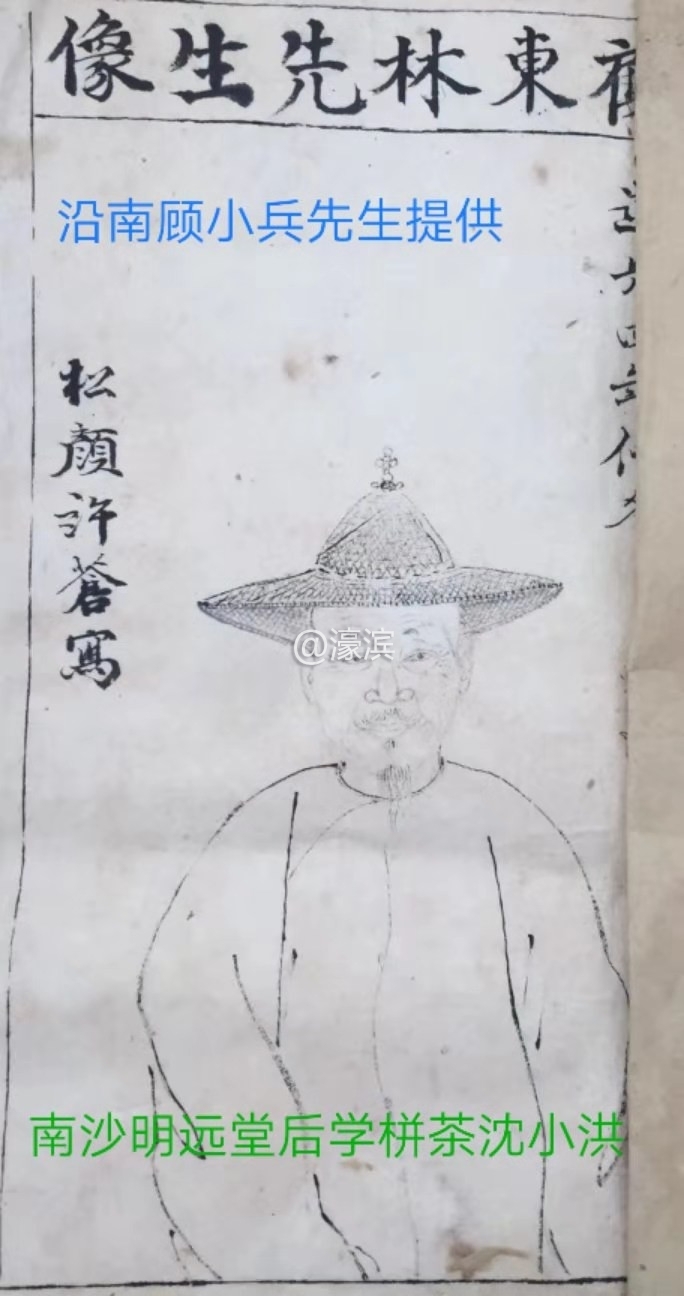 東林先生像
沿南顾小兵先生提供
松顏許蒼寫
@濠滨
南沙明远堂后学栟茶沈小洪